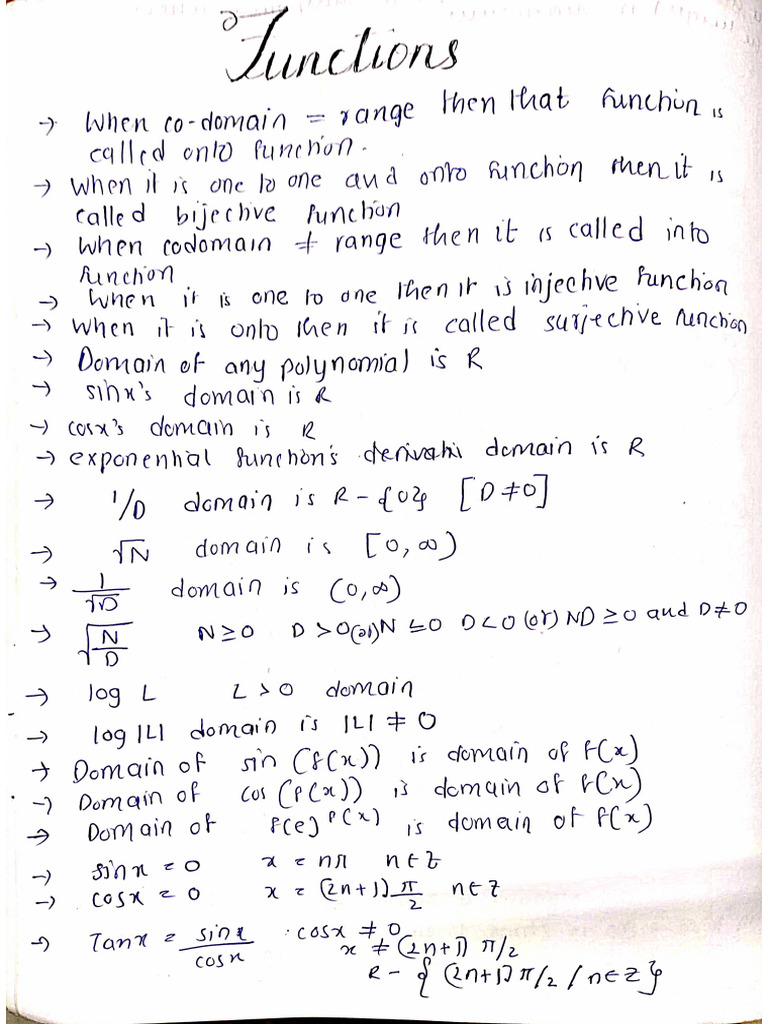 Functions
→ When co-domain = range then that function is
called onto function.
→ When it is one to one and onto function then it is
called bijective function
→ When codomain ≠ range then it is called into
function
→ When it is one to one then it is injective function
→ When it is onto then it is called surjective function
→ Domain of any polynomial is R
→ sinx's domain is R
→ cosx's domain is R
→ exponential function's domain is R
→ 1/D domain is R - {0} [D ≠ 0]
→ √N domain is [0, ∞)
→ 1/√D domain is (0, ∞)
→ √(N/D) N ≥ 0 D > 0 (or) N ≤ 0 D < 0 (or) ND ≥ 0 and D ≠ 0
→ log L L > 0 domain
→ log |L| domain is |L| ≠ 0
→ Domain of sin (f(x)) is domain of f(x)
→ Domain of cos (f(x)) is domain of f(x)
→ Domain of f(e)^f(x) is domain of f(x)
→ sinx = 0 x = nπ n ∈ Z
→ cosx = 0 x = (2n+1) π/2 n ∈ Z
→ Tanx = sinx/cosx cosx ≠ 0
x ≠ (2n+1) π/2
R - {(2n+1) π/2 / n ∈ Z}